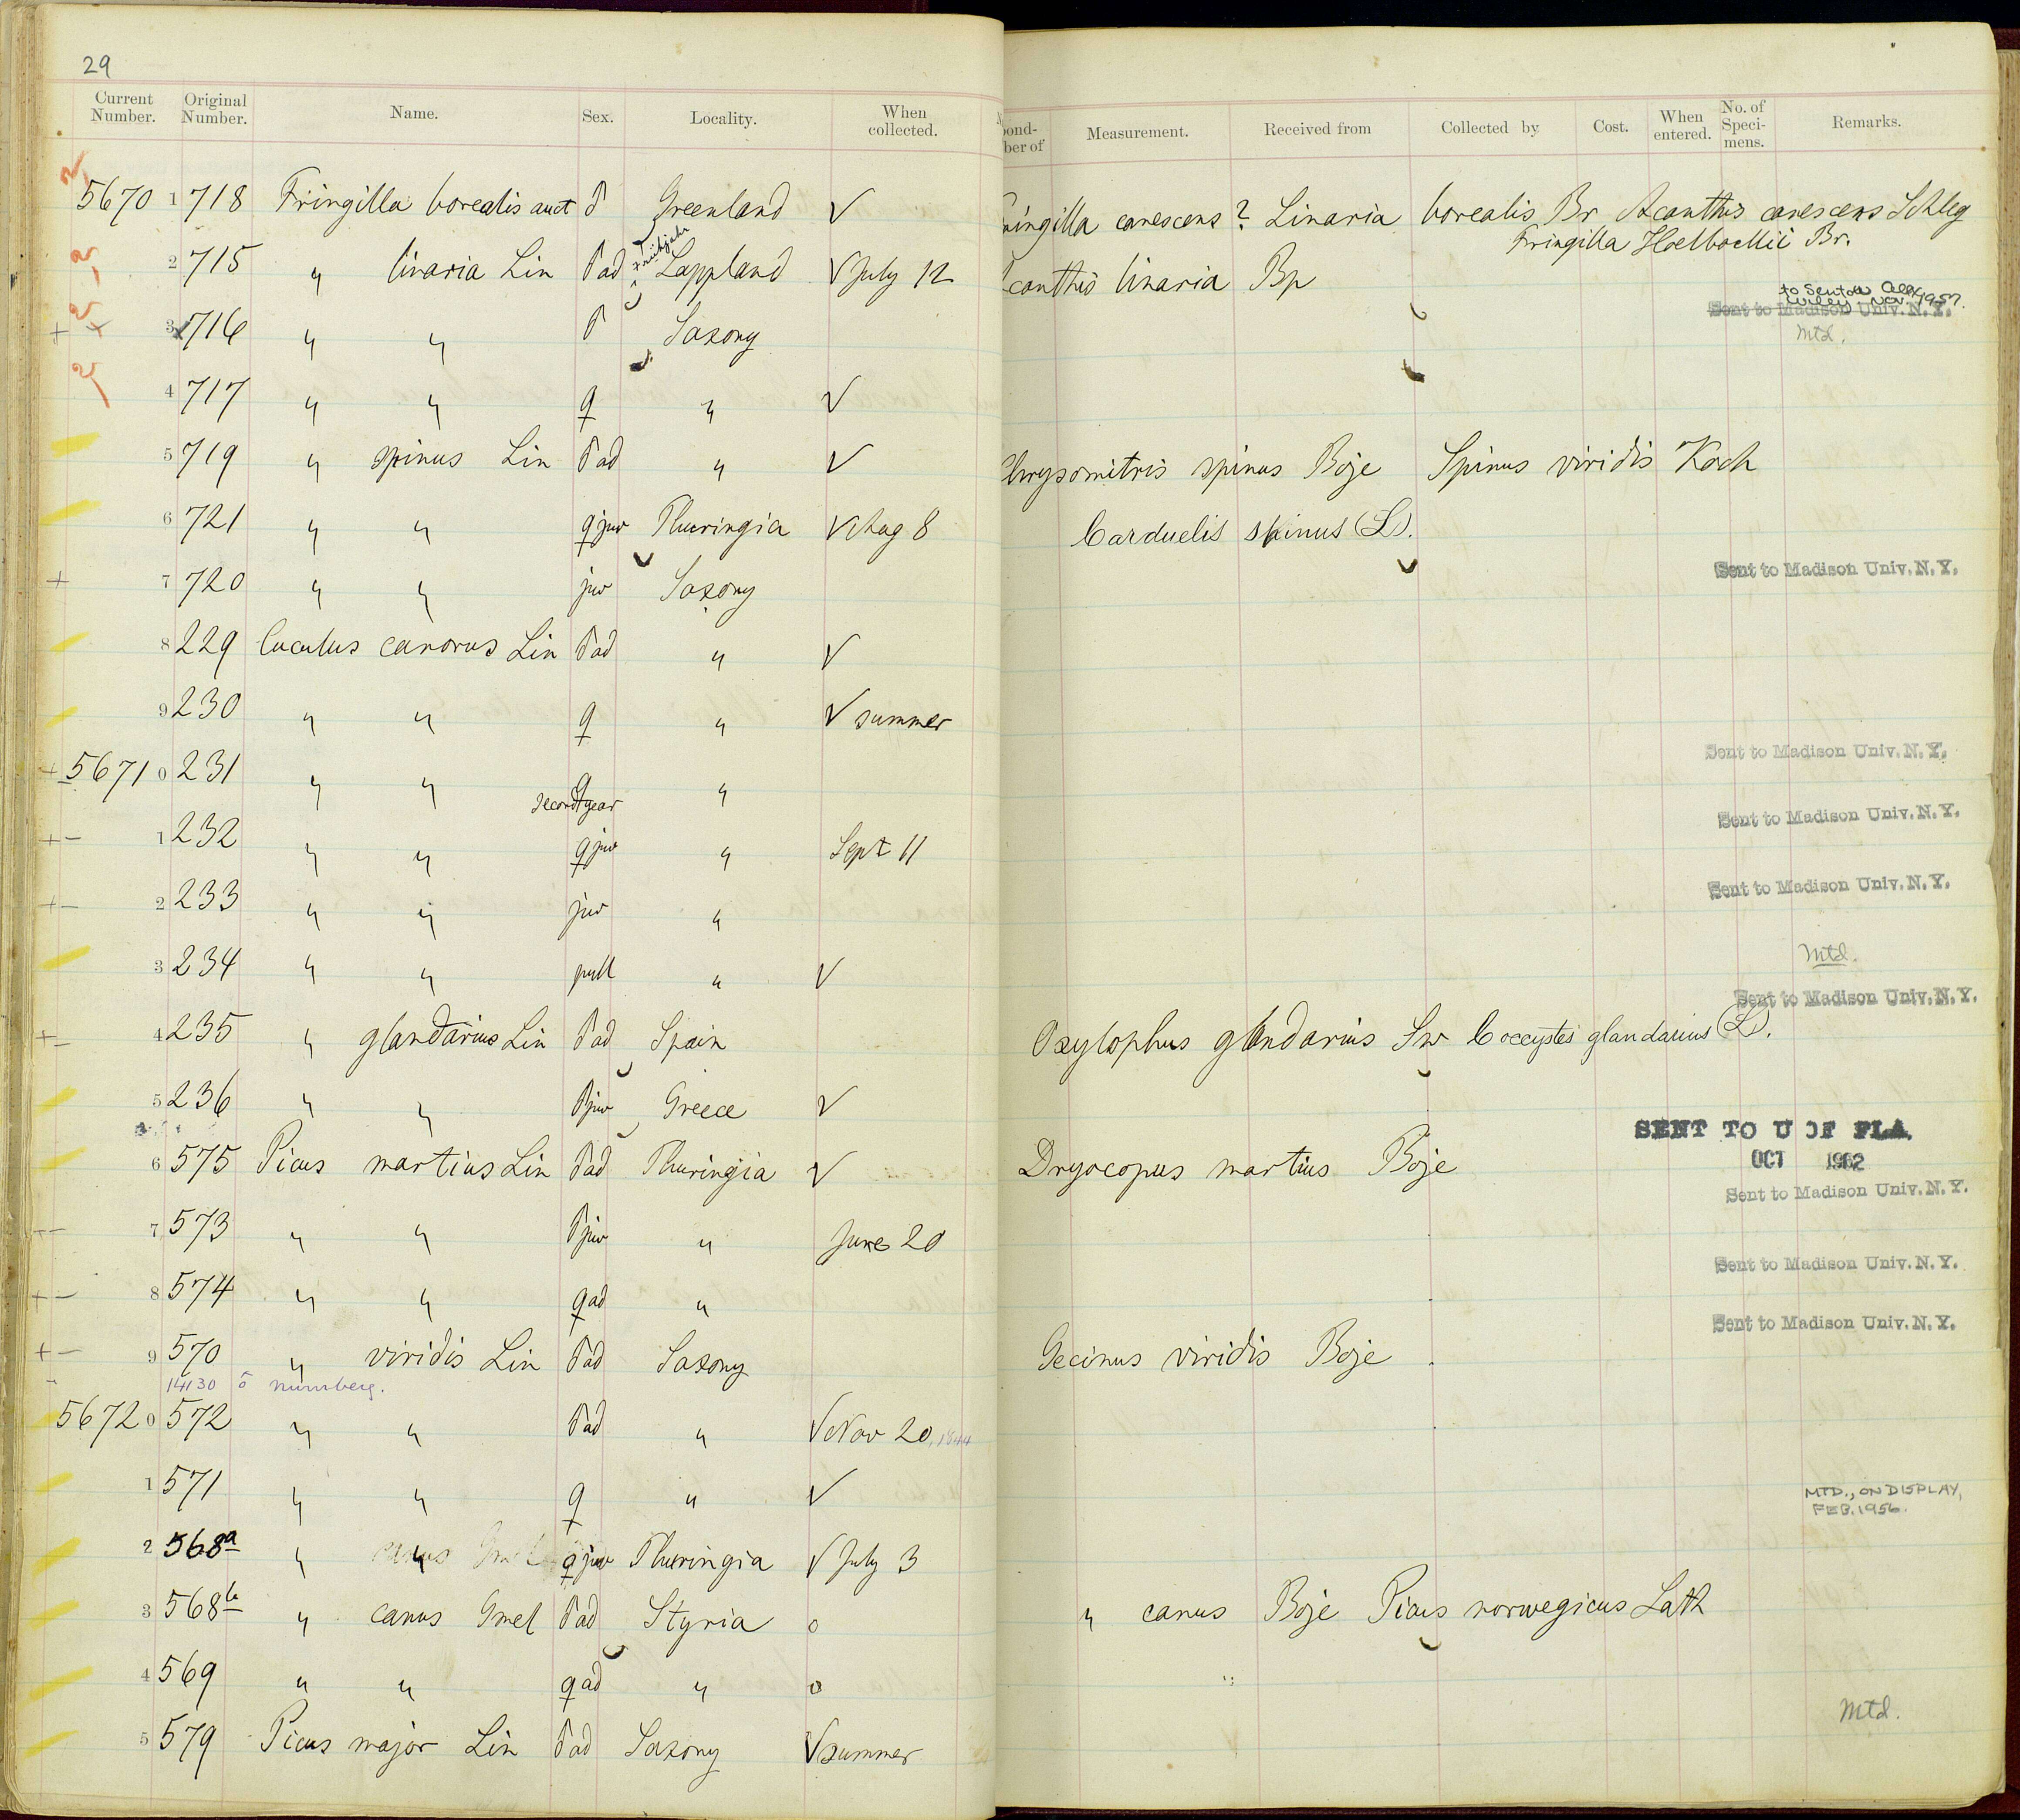 29
Current Number. Original Number. Name. Sex. Locality. When collected.
ond- ber of Measurement. Received from Collected by Cost. When entered. No. of Speci- mens. Remarks.
5670 1 718 Fringilla borealis auct ♂ Greenland √ ringilla canescens? Linaria borealis Br Acanthis canescens Schleg
Fringilla Holboellii Br.
2 715 " linaria Lin ♂ ad Lappland √ July 12 canthis linaria Bp
to Senton
Nov. 1957.
Sent to Madison Univ. N.Y.
3 716 " " ♂ Saxony Mtd.
4 717 " " ♀ " √
5 719 " spinus Lin ♂ ad " √ hrysomitris spinus Boje Spinus viridis Koch
6 721 " " ♀ juv Thuringia √ Aug 8 Carduelis spinus (L).
7 720 " " juv Saxony Sent to Madison Univ. N.Y.
8 229 Cuculus canorus Lin ♂ ad " √
9 230 " " ♀ " √ summer
5671 0 231 " " ♀ second year " Sent to Madison Univ. N.Y.
1 232 " " ♀ juv " Sept 11 Sent to Madison Univ. N.Y.
2 233 " " juv " Sent to Madison Univ. N.Y.
3 234 " " pull " √ Mtd.
Sent to Madison Univ. N.Y.
4 235 " glandarius Lin ♂ ad Spain Oxylophus glandarius Sw Coccystes glandarius (L).
5 236 " " ♂ juv Greece √
SENT TO U OF FLA.
OCT 1962
6 575 Picus martius Lin ♂ ad Thuringia √ Dryocopus martius Boje
Sent to Madison Univ. N.Y.
7 573 " " ♂ juv " June 20
Sent to Madison Univ. N.Y.
8 574 " " ♀ ad "
Sent to Madison Univ. N.Y.
9 570 " viridis Lin ♂ ad Saxony Gecinus viridis Boje
14130 ♂ Nürnberg.
5672 0 572 " " ♂ ad " √ Nov 20, 1844
1 571 " " ♀ " √ MTD., ON DISPLAY,
FEB. 1956.
2 568a " " ♀ juv Thuringia √ July 3
3 568b " canus Gmel ♂ ad Styria o " canus Boje Picus norwegicus Lath
4 569 " " ♀ ad " o "
5 579 Picus major Lin ♂ ad Saxony √ summer Mtd.